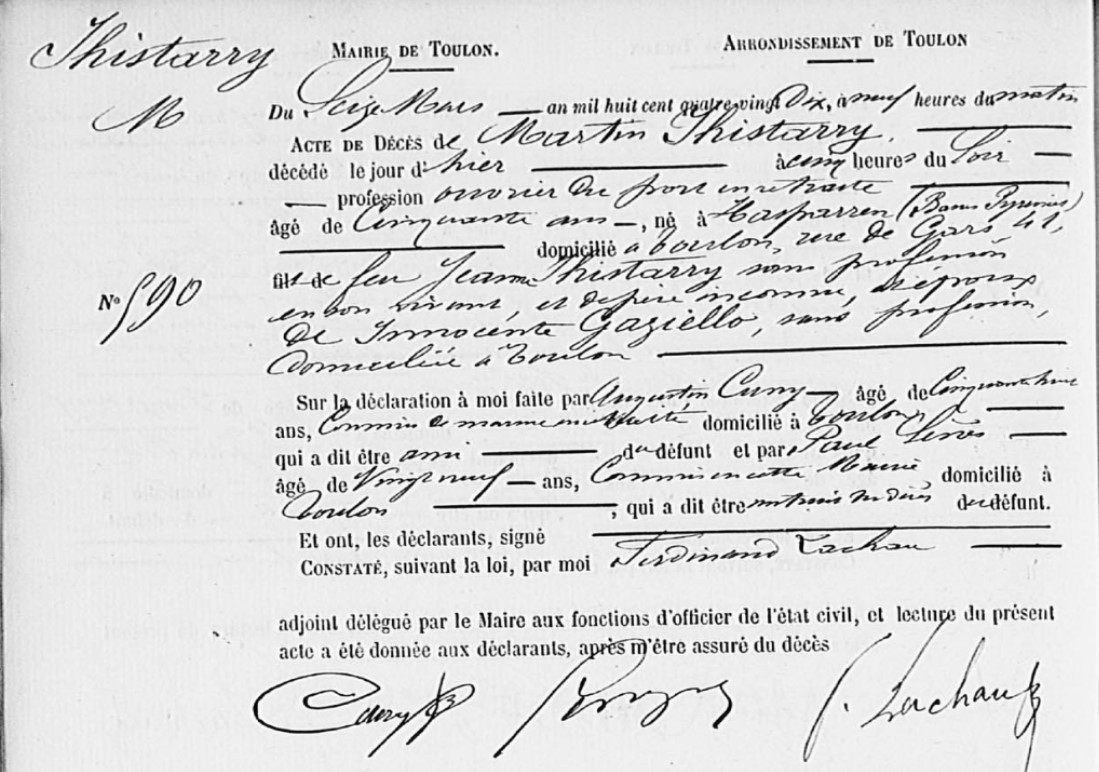 Thistarry
M
MAIRIE DE TOULON. ARRONDISSEMENT DE TOULON
Du Seize Mars — an mil huit cent quatre-vingt Dix, à neuf heures du matin
ACTE DE DÉCÈS de Martin Thistarry.
décédé le jour d'hier — à cinq heures du soir —
— profession ouvrier du port en retraite
âgé de Cinquante ans —, né à Hasparren (Basses Pyrénées)
domicilié à Toulon, rue de Gars 41,
fils de feu Jeanne Thistarry sans profession
en son vivant, et de père inconnu, époux
de Innocente Gaziello, sans profession,
domiciliée à Toulon —
N° 590
Sur la déclaration à moi faite par Augustin Cuny — âgé de
ans, Commis de marine en retraite domicilié à Toulon,
qui a dit être ami — du défunt et par Paul
âgé de Vingt neuf — ans, domicilié à
Toulon —, qui a dit être du défunt.
Et ont, les déclarants, signé
CONSTATÉ, suivant la loi, par moi Ferdinand Lachau —
adjoint délégué par le Maire aux fonctions d'officier de l'état civil, et lecture du présent
acte a été donnée aux déclarants, après m'être assuré du décès
Cuny F. Lachau